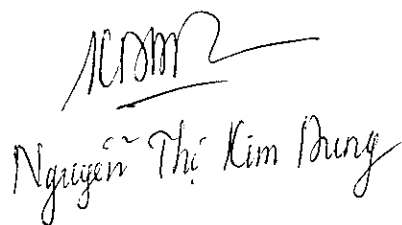 Nguyễn Thị Kim Dung